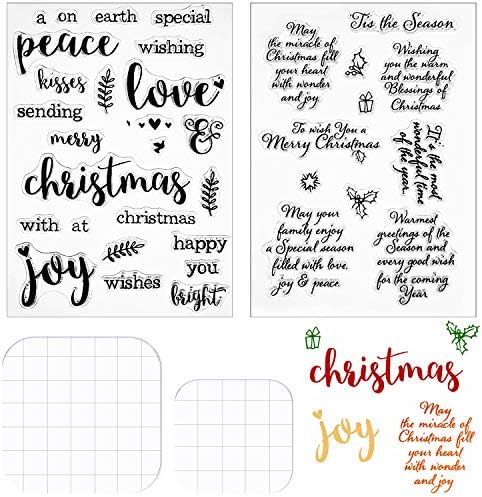 a on earth special
peace wishing
kisses love
sending
merry &
christmas
with at christmas
joy happy
you
wishes bright
'Tis the Season
May
the miracle of
Christmas fill
your heart
with wonder
and joy.
Wishing
you the warm
and wonderful
Blessings of
Christmas.
To wish You a
Merry Christmas
It's the most
wonderful time
of the year.
May your
family enjoy
a Special season
filled with love,
joy & peace.
Warmest
greetings of the
Season and
every good wish
for the coming
Year
christmas
joy
May
the miracle of
Christmas fill
your heart
with wonder
and joy